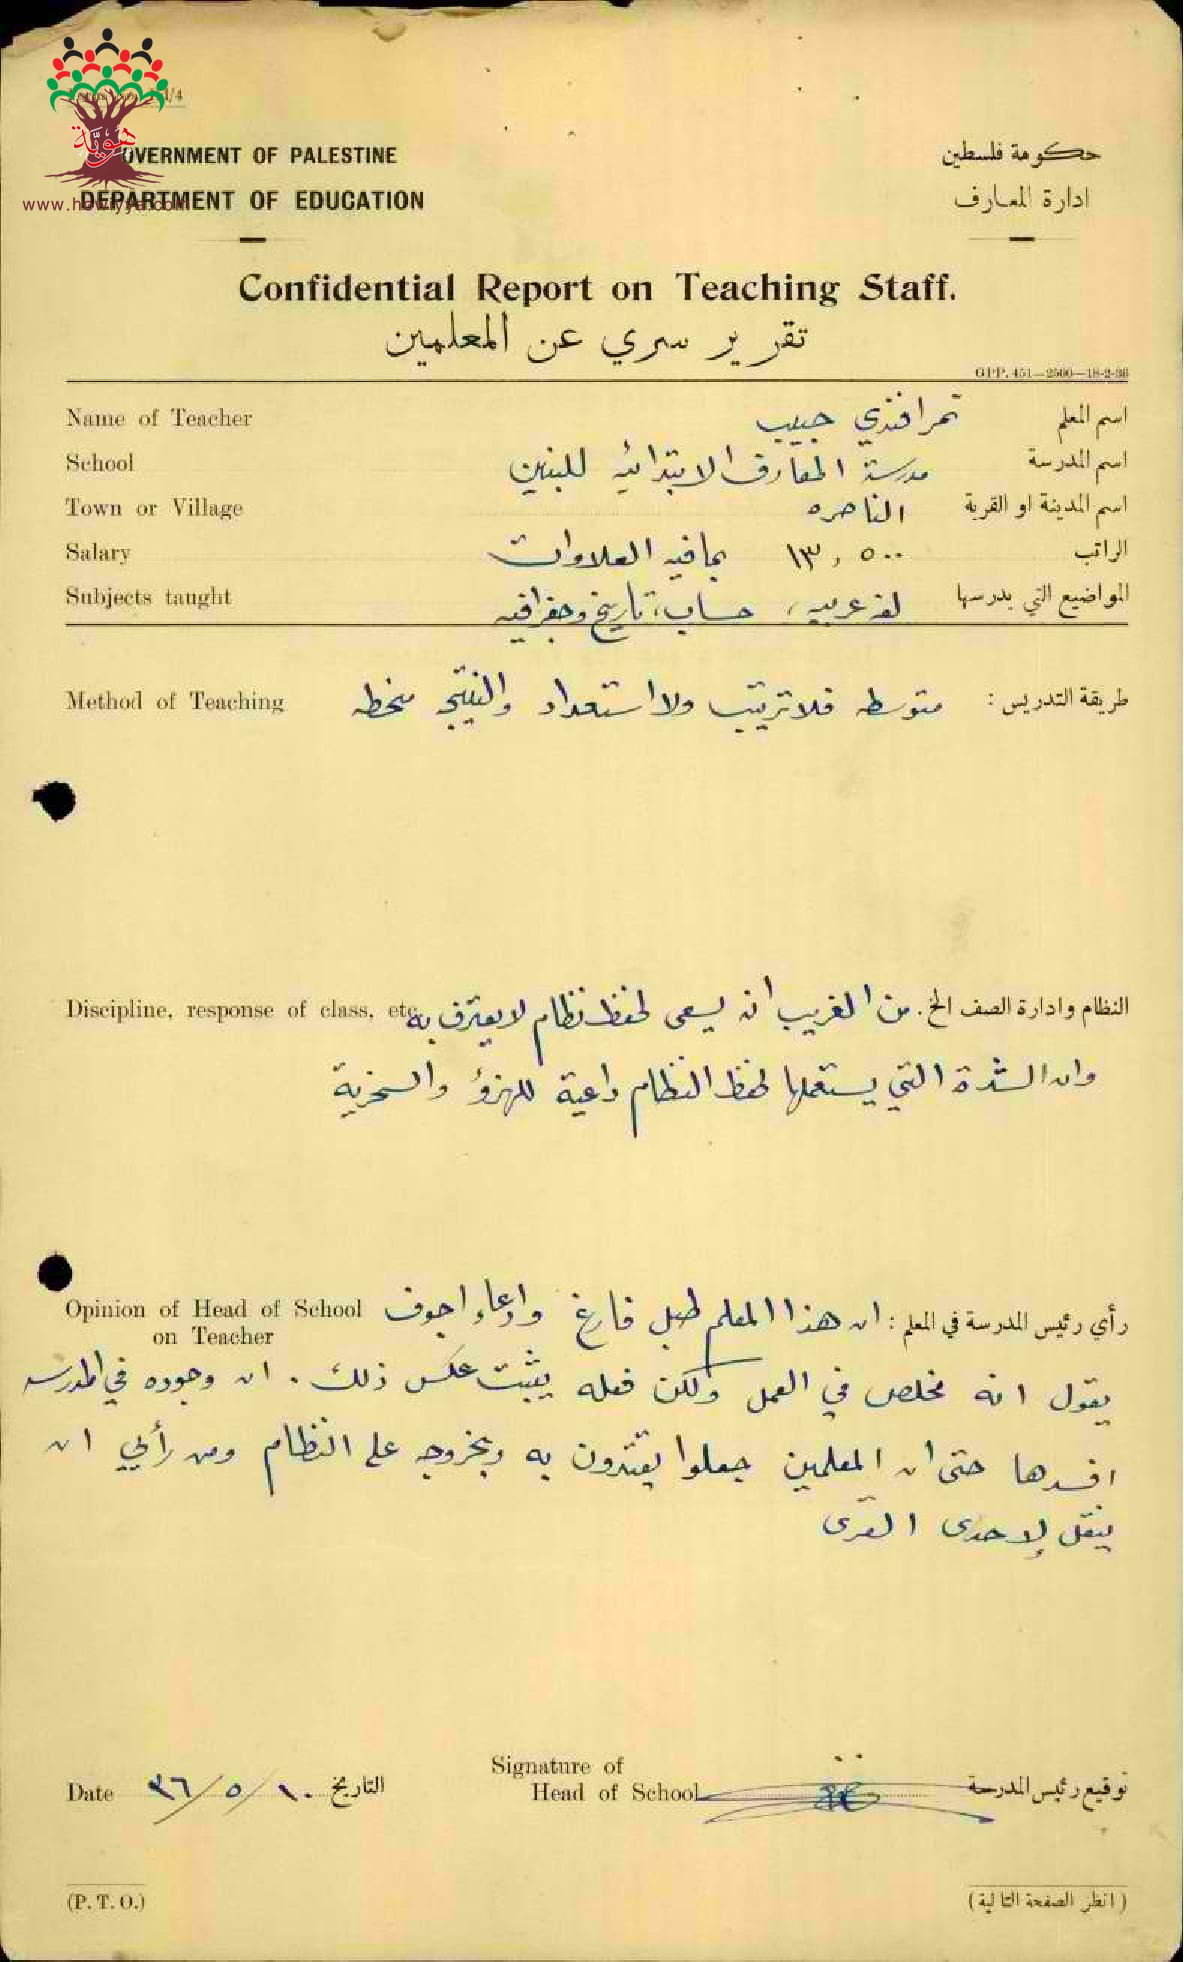 هوية
www.howiyya.com
GOVERNMENT OF PALESTINE
حكومة فلسطين
DEPARTMENT OF EDUCATION
ادارة المعارف
Confidential Report on Teaching Staff.
تقرير سري عن المعلمين
GPP. 451—2500—18-2-36
Name of Teacher نمر افندي حبيب اسم المعلم
School مدرسة المعارف الابتدائيه للبنين اسم المدرسة
Town or Village الناصره اسم المدينة او القرية
Salary ١٣,٥٠٠ بما فيه العلاوات الراتب
Subjects taught لغه عربيه، حساب، تاريخ وجغرافيه المواضيع التي يدرسها
Method of Teaching طريقة التدريس : متوسطه فلا ترتيب ولا استعداد والنتيجه منحطه
Discipline, response of class, etc. النظام وادارة الصف الخ. من الغريب انه يسعى لحفظ نظام لا يعترف به
وان الشدة التي يستعملها لحفظ النظام داعية للهزؤ والسخرية
Opinion of Head of School رأي رئيس المدرسة في المعلم : ان هذا المعلم طبل فارغ وادعاء اجوف
on Teacher
يقول انه مخلص في العمل ولكن فعله يثبت عكس ذلك. ان وجوده في المدرسه
افسدها حتى ان المعلمين جعلوا يقتدون به وبخروجه على النظام ومن رأيي ان
ينقل لإحدى القرى
Signature of
Date ٣٦/٥/١٠ التاريخ Head of School توقيع رئيس المدرسة
(P. T. O.) (انظر الصفحة التالية)